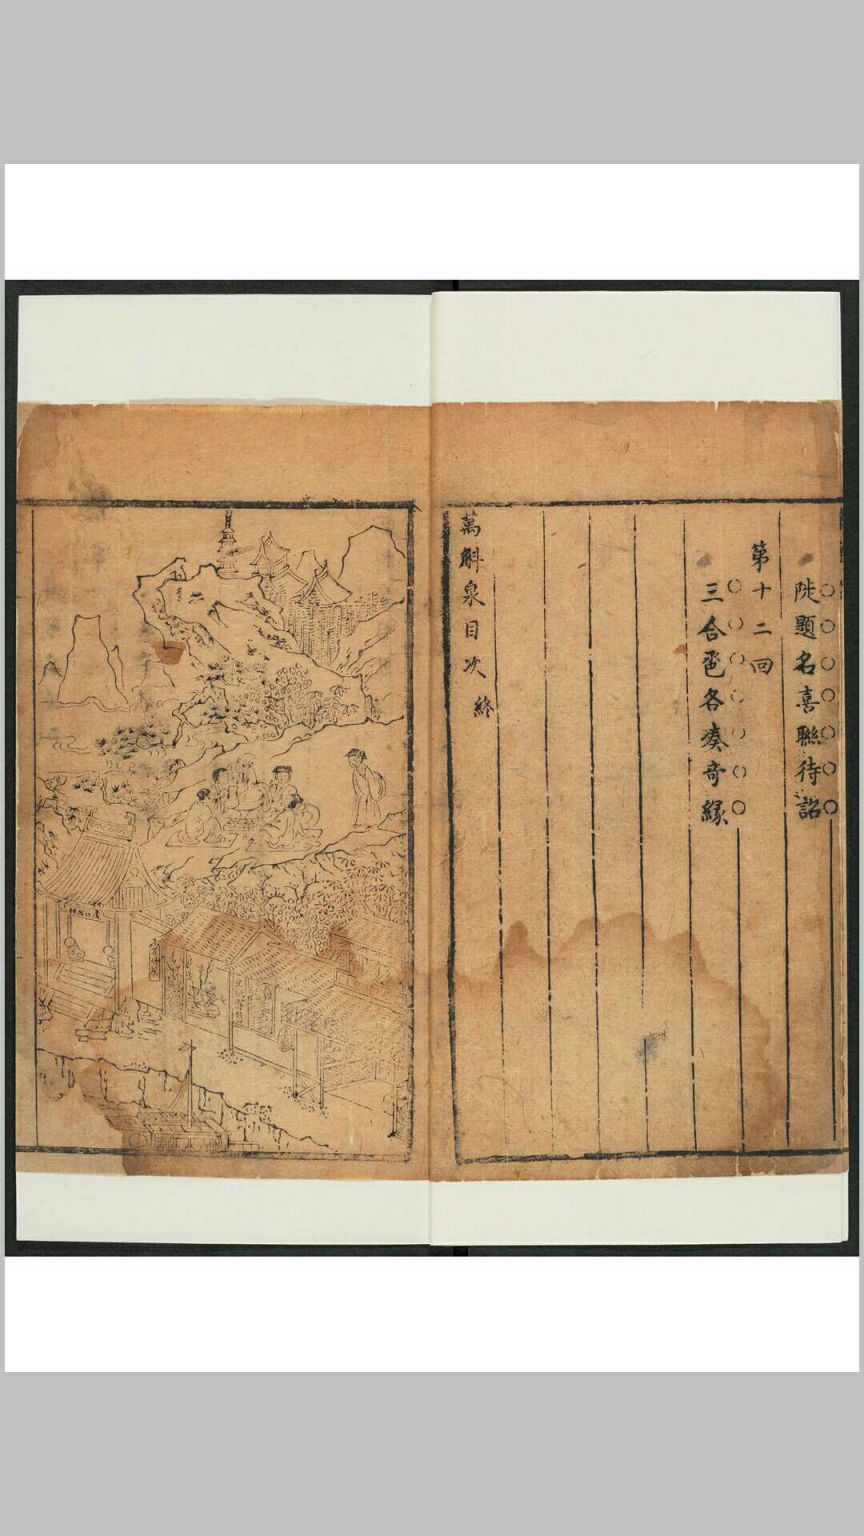 陡題名喜聯待詔
第十二回
三合巹各湊奇緣
萬斛泉目次 終